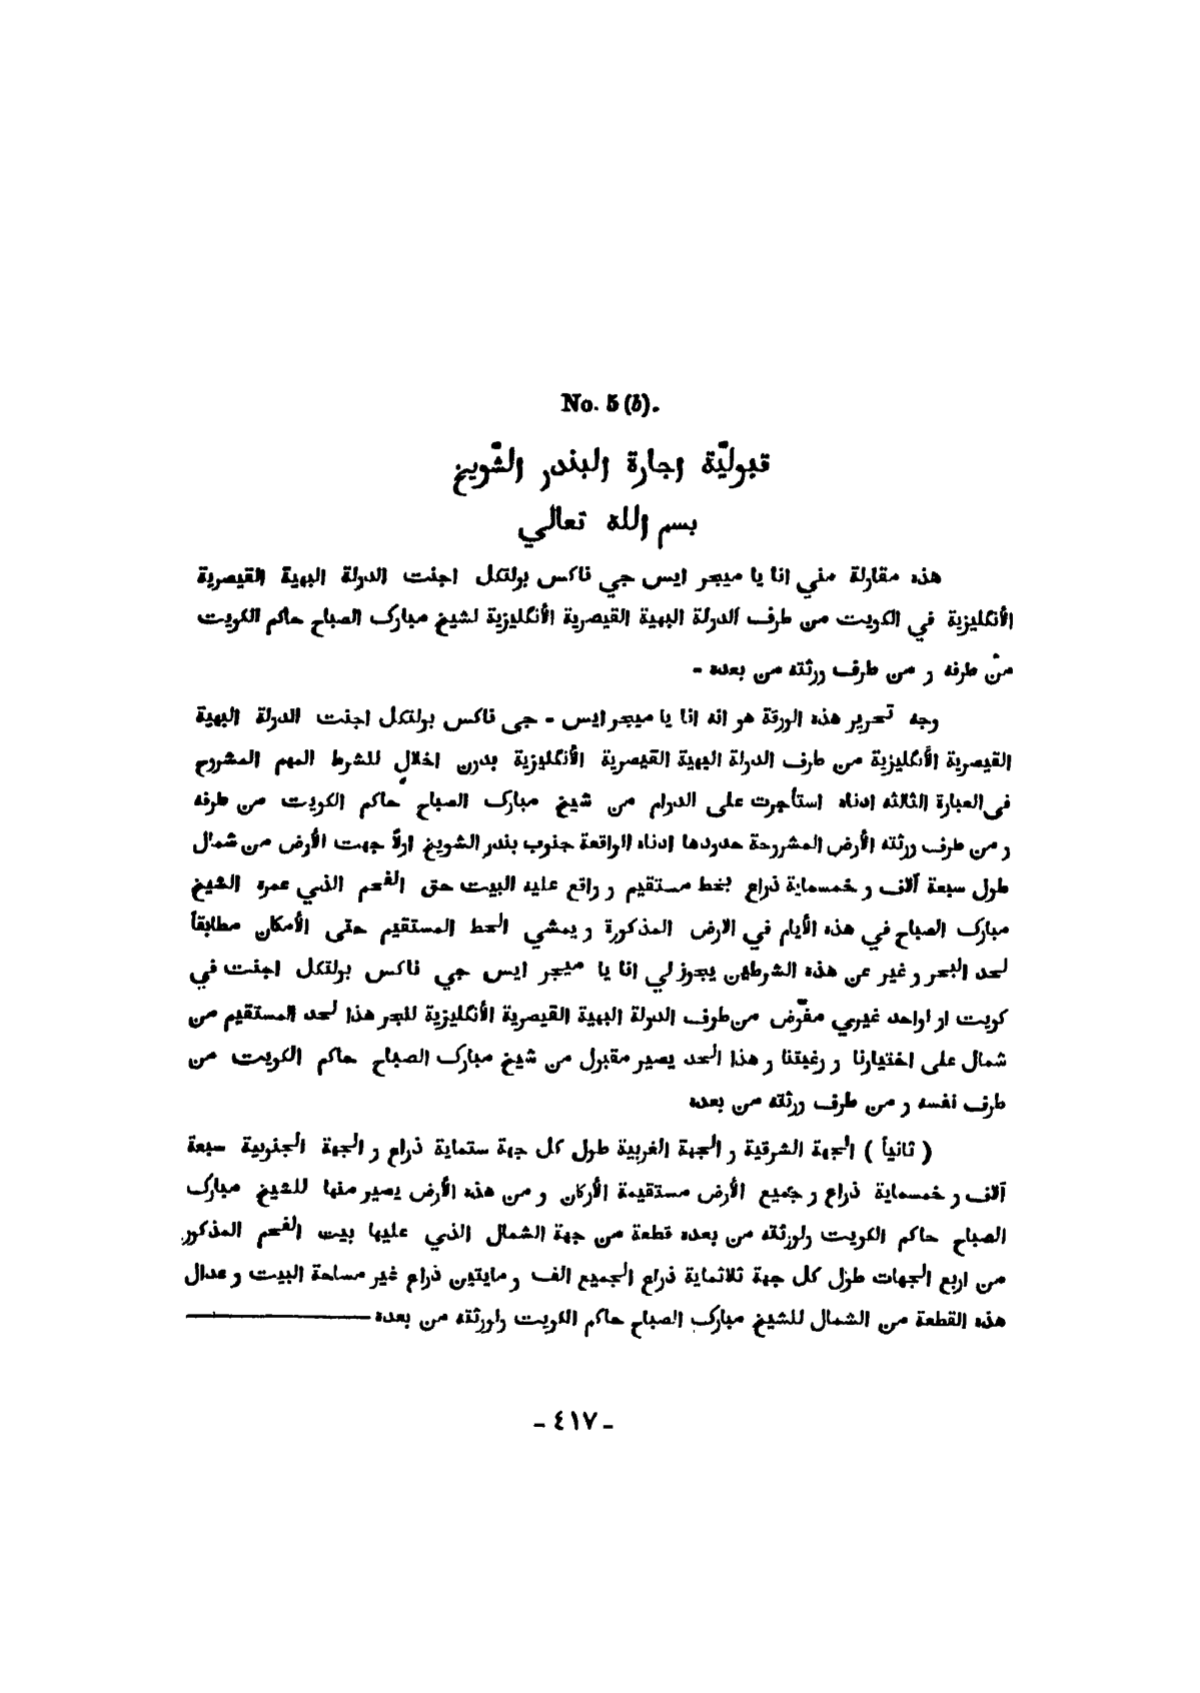 No. 5 (b).
قبوليّة اجارة البندر الشّويخ
بسم الله تعالي
هذه مقاولة مني انا يا ميجر ايس جي ناكس بولتكل اجنت الدولة البهية القيصرية
الأنكليزية في الكويت من طرف الدولة البهية القيصرية الأنكليزية لشيخ مبارك الصباح حاكم الكويت
من طرفه و من طرف ورثته من بعده -
وجه تحرير هذه الورقة هو انه انا يا ميجر ايس - جي ناكس بولتكل اجنت الدولة البهية
القيصرية الأنكليزية من طرف الدولة البهية القيصرية الأنكليزية بدون اخلال للشرط المهم المشروح
في العبارة الثالثه ادناه استأجرت على الدوام من شيخ مبارك الصباح حاكم الكويت من طرفه
و من طرف ورثته الأرض المشروحة حدودها ادناه الواقعة جنوب بندر الشويخ اولاً جهت الأرض من شمال
طول سبعة آلاف و خمسماية ذراع بخط مستقيم و واقع عليه البيت حق الفحم الذي عمره الشيخ
مبارك الصباح في هذه الأيام في الارض المذكورة و يمشي الحط المستقيم حتى الأمكان مطابقاً
لحد البحر و غير عن هذه الشرطين يجوز لي انا يا ميجر ايس جي ناكس بولتكل اجنت في
كويت او اواحد غيري مفوّض من طرف الدولة البهية القيصرية الأنكليزية للجر هذا لحد المستقيم من
شمال على اختيارنا و رغبتنا و هذا الحد يصير مقبول من شيخ مبارك الصباح حاكم الكويت من
طرف نفسه و من طرف ورثته من بعده
( ثانياً ) الجهة الشرقية و الجهة الغربية طول كل جهة ستماية ذراع و الجهة الجنوبية سبعة
آلاف و خمسماية ذراع و جميع الأرض مستقيمة الأركان و من هذه الأرض يصير منها للشيخ مبارك
الصباح حاكم الكويت ولورثته من بعده قطعة من جهة الشمال الذي عليها بيت الفحم المذكور
من اربع الجهات طول كل جهة ثلاثماية ذراع الجميع الف و مايتين ذراع غير مساحة البيت و عدال
هذه القطعة من الشمال للشيخ مبارك الصباح حاكم الكويت ولورثته من بعده
- ٤١٧ -